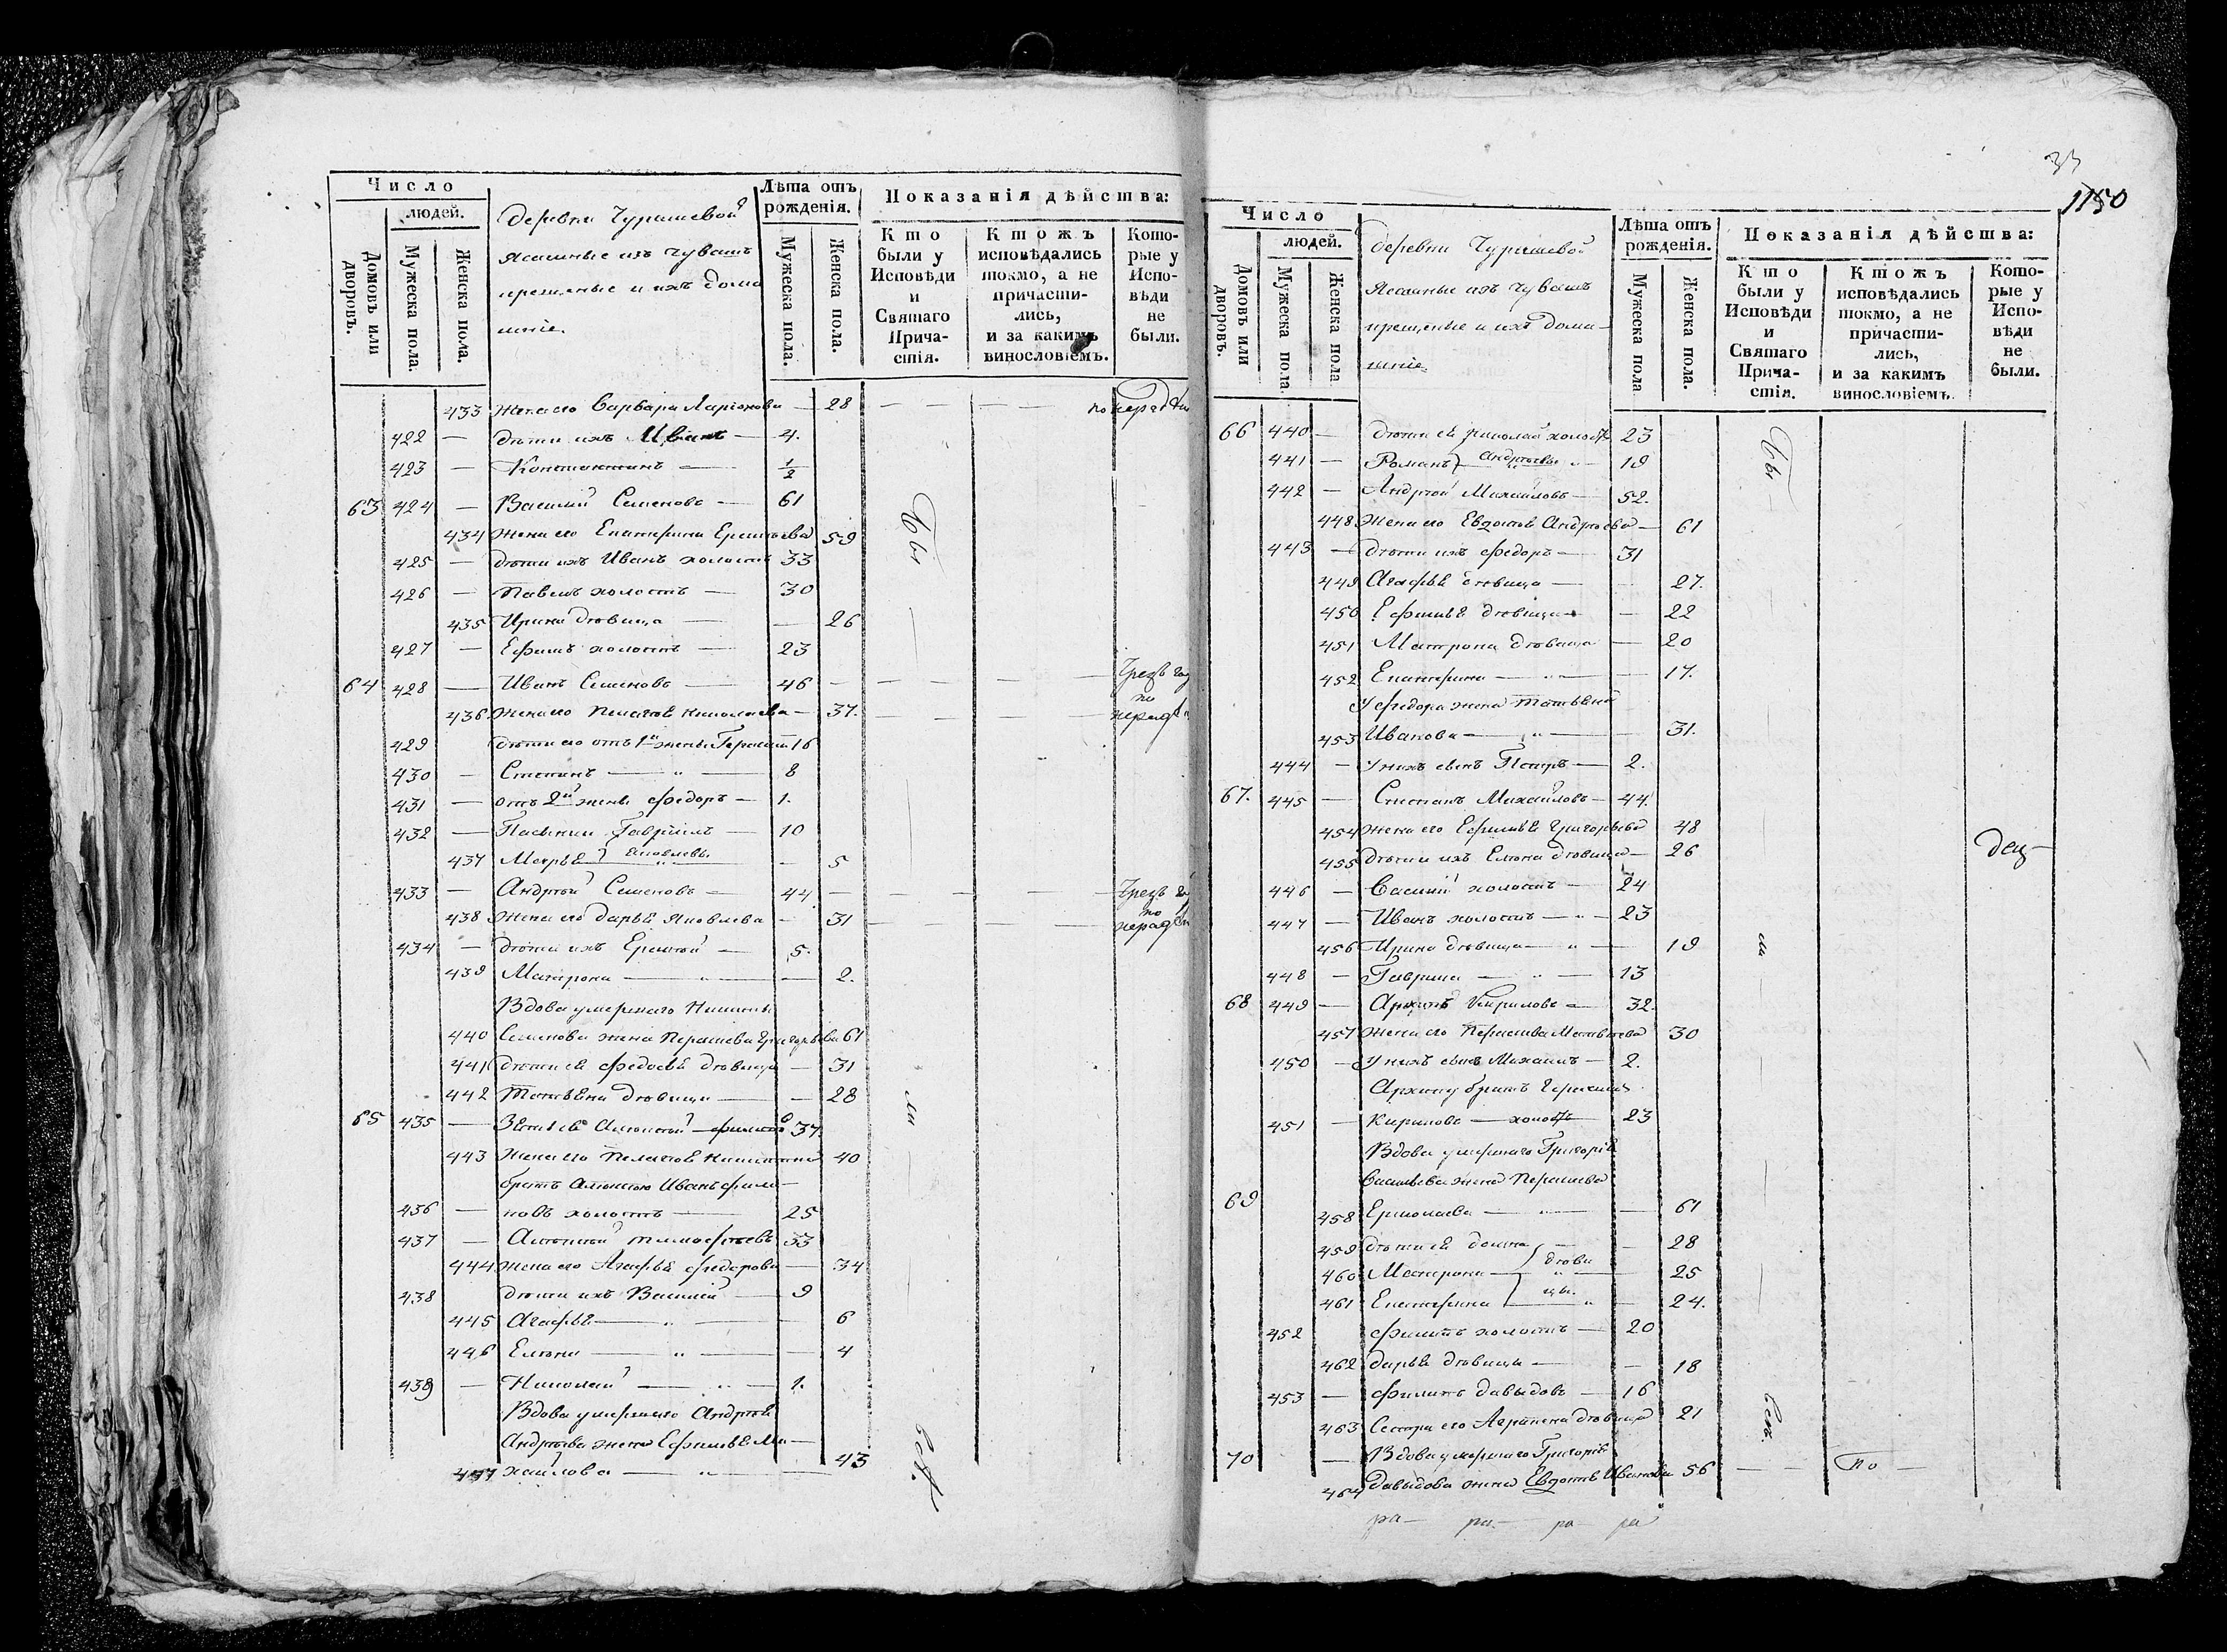 Число
людей.
Домовъ или дворовъ.
Мужеска пола.
Женска пола.
деревни Чурашевой
Ясашные изъ чувашъ
крещеные и ихъ дома
шніе.
Лѣта отъ рожденія.
Мужеска пола.
Женска пола.
Показанія дѣйства:
Кто были у Исповѣди и Святаго Причастія.
Ктожъ исповѣдались токмо, а не причастились, и за какимъ винословіемъ.
Которые у Исповѣди не были.
433 жена его Варвара Ларіонова — 28 — — — — по нерад
422 — дѣти ихъ Иванъ — 4.
423 — Константинъ — 1/2
63 424 — Василій Семеновъ — 61 Бы
434 жена его Екатерина Еремѣева 59
425 — дѣти ихъ Иванъ холостъ 33
426 — Павелъ холостъ — 30
435 Ирина дѣвица — — 26
427 — Ефимъ холостъ — 23
64 428 — Иванъ Семеновъ — 46 — — — — — Чрезъ
по
436 жена его Пелагея Николаева — 37. — — — — нерад
429 дѣти его отъ 1й жены Герасим 16
430 — Степанъ — „ — 8
431 — отъ 2й жены Федоръ — 1.
432 — Пасынки Гавріилъ — 10
437 Марья Яковлевы — „ — 5
433 — Андрей Семеновъ — 44 — — — — — Чрезъ
по
438 жена его Дарья Яковлева — 31 — — — — нерад
434 — дѣти ихъ Еремѣй — 5.
439 Матрона — „ — 2.
Вдова умершаго Никиты
440 Семенова жена Парасковья Григорьева 61
441 дѣти ея Федосья дѣвица — 31
442 Татьяна дѣвица — — 28 ли
65 435 — Зять его Алексѣй 37.
443 Жена его Пелагея Никитина 40
братъ Алексѣю Иванъ Фили—
436 — повъ холостъ — 25
437 — Алексѣй Тимофѣевъ 33
444 жена его Агафья Федорова — 34
438 дѣти ихъ Василій — 9
445 Агафья — „ — 6
446 Елена — „ — 4
439 — Николай — „ — 1.
Вдова умершаго Андрея
Андреева жена Ефимья Ми—
447 хайлова — „ — 43 всѣ
33
1150
Число
людей.
Домовъ или дворовъ.
Мужеска пола
Женска пола
деревни Чурашевой
Ясашные изъ чувашъ
крещеные и ихъ дома—
шніе.
Лѣта отъ рожденія.
Мужеска пола
Женска пола.
Показанія дѣйства:
Кто были у Исповѣди и Святаго Причастія.
Ктожъ исповѣдались токмо, а не причастились, и за какимъ винословіемъ.
Которые у Исповѣди не были.
66 440 — дѣти ея Николай холостъ 23 Бы
441 — Романъ Андреевы „ — 19
442 — Андрей Михайловъ — 52.
448 Жена его Евдокія Андреева — 61
443 — дѣти ихъ Федоръ — 31
449 Агафья дѣвица — — 27.
450 Ефимья дѣвица — — 22
451 Матрона дѣвица — 20
452 Екатерина — „ — — 17.
У Федора жена Татьяна
453 Иванова — „ — 31.
444 — У нихъ сынъ Петръ — 2.
67. 445 — Степанъ Михайловъ — 44.
454 жена его Ефимья Григорьева 48
455 дѣти ихъ Елена дѣвица — 26 дец—
446 — Василій холостъ — 24
447 — Иванъ холостъ — „ — 23
456 Ирина дѣвица — „ — 19 ли
448 — Гаврила — „ — 13
68 449 — Архипъ Кириловъ — 32.
457 жена его Парасковья Матвѣева 30
450 — У нихъ сынъ Михаилъ — 2.
Архипу братъ Герасимъ
451 — Кириловъ — холостъ 23
Вдова умершаго Григорія
Васильева жена Парасковья
69
458 Ермолаева — „ — — 61
459 дѣти ея — — 28
460 Матрона — дѣви „ — 25
461 Екатерина — цы. „ — 24.
452 Филипъ холостъ — 20
462 Дарья дѣвица — — 18
453 — Филипъ Давыдовъ — 16
463 Сестра его Агрипена дѣвица 21 всѣ.
70 — Вдова умершаго Григорія
464 Давыдова жена Евдокія Иванова 56 — — по —
ра— ра— ра— ра